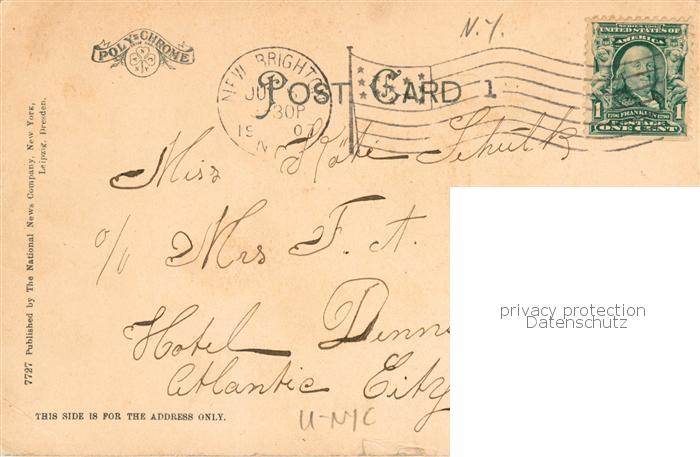 N.Y.
POLY-CHROME
SERIES 1902
UNITED STATES OF
AMERICA
NEW BRIGHT
JU
30P
19 07
N
POST CARD
1
1 1
FRANKLIN
ONE CENT
Miss Käti Schultz
c/o Mrs F. A.
Hotel Denni
Atlantic City
U-NYC
privacy protection
Datenschutz
7727 Published by The National News Company, New York,
Leipzig, Dresden.
THIS SIDE IS FOR THE ADDRESS ONLY.